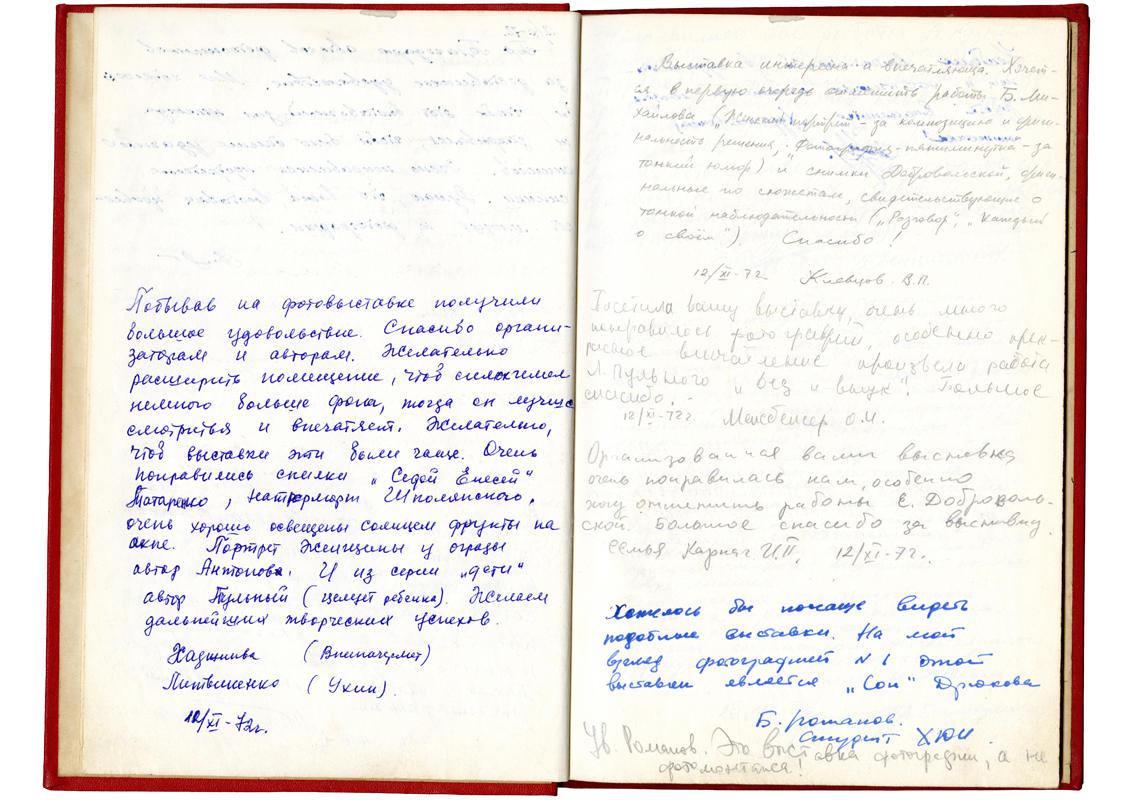 Побывав на фотовыставке получили
большое удовольствие. Спасибо органи-
заторам и авторам. Желательно
расширить помещение, чтоб снимок имел
немного больше фона, тогда он лучше
смотриться и впечатляет. Желательно,
чтоб выставки эти были чаще. Очень
понравились снимки „Седой Енесей"
Татаренко, Натюрморт Шполянского.
очень хорошо освещены солнцем фрукты на
окне. Портрет женщины у ограды
автор Антонова. И из серии „дети"
автор Пульный (целует ребенка). Желаем
дальнейших творческих успехов.
Литвиненко (Ухин).
12/XI-72г.
Выставка интересна и впечатляюща. Хочет-
ся в первую очередь отметить работы Б. Ми-
хайлова („Женский портрет" - за композицию и ориги-
нальность решения, „Фотография-пятиминутка - за
тонкий юмор) и снимки Добровольской, ориги-
нальные по сюжетам, свидетельствующие о
тонкой наблюдательности („Разговор", „Каждый
о своём"). Спасибо!
12/XI-72г. Клевцов. В.П.
Посетила вашу выставку, очень много
понравилось фотографий, особенно прек-
расное впечатление произвела работа
Л. Пульного „Дед и внук". Большое
спасибо. -
12/XI-72г. О.И.
Организованная вами выставка
очень понравилась нам, особенно
хочу отметить работы Е. Доброволь-
ской. Большое спасибо за выставку.
семья Карнач И.П. 12/XI-72г.
Хотелось бы почаще видеть
подобные выставки. На мой
взгляд фотографией N 1 этой
выставки является „Сон" Дрюкова
Б. Романов.
студент ХЮИ.
Ув. Романов. Это выставка фотографии, а не
фотомонтажа!